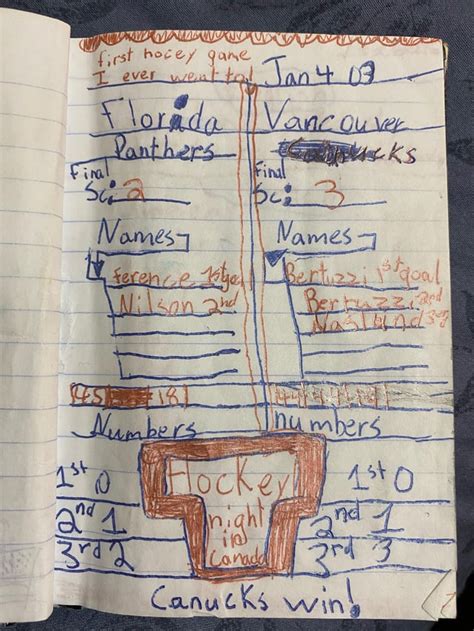 first hocey game
I ever went to! Jan 4 03
Florida Vancouver
Panthers Canucks
Final Final
Sc: 2 Sc: 3
Names Names
ference 1st goal Bertuzzi 1st goal
Nilson 2nd Bertuzzi 2nd
Naslund 3rd
18
Numbers numbers
Hockey
night
in
Canada
1st 0 1st 0
2nd 1 2nd 1
3rd 2 3rd 3
Canucks win!